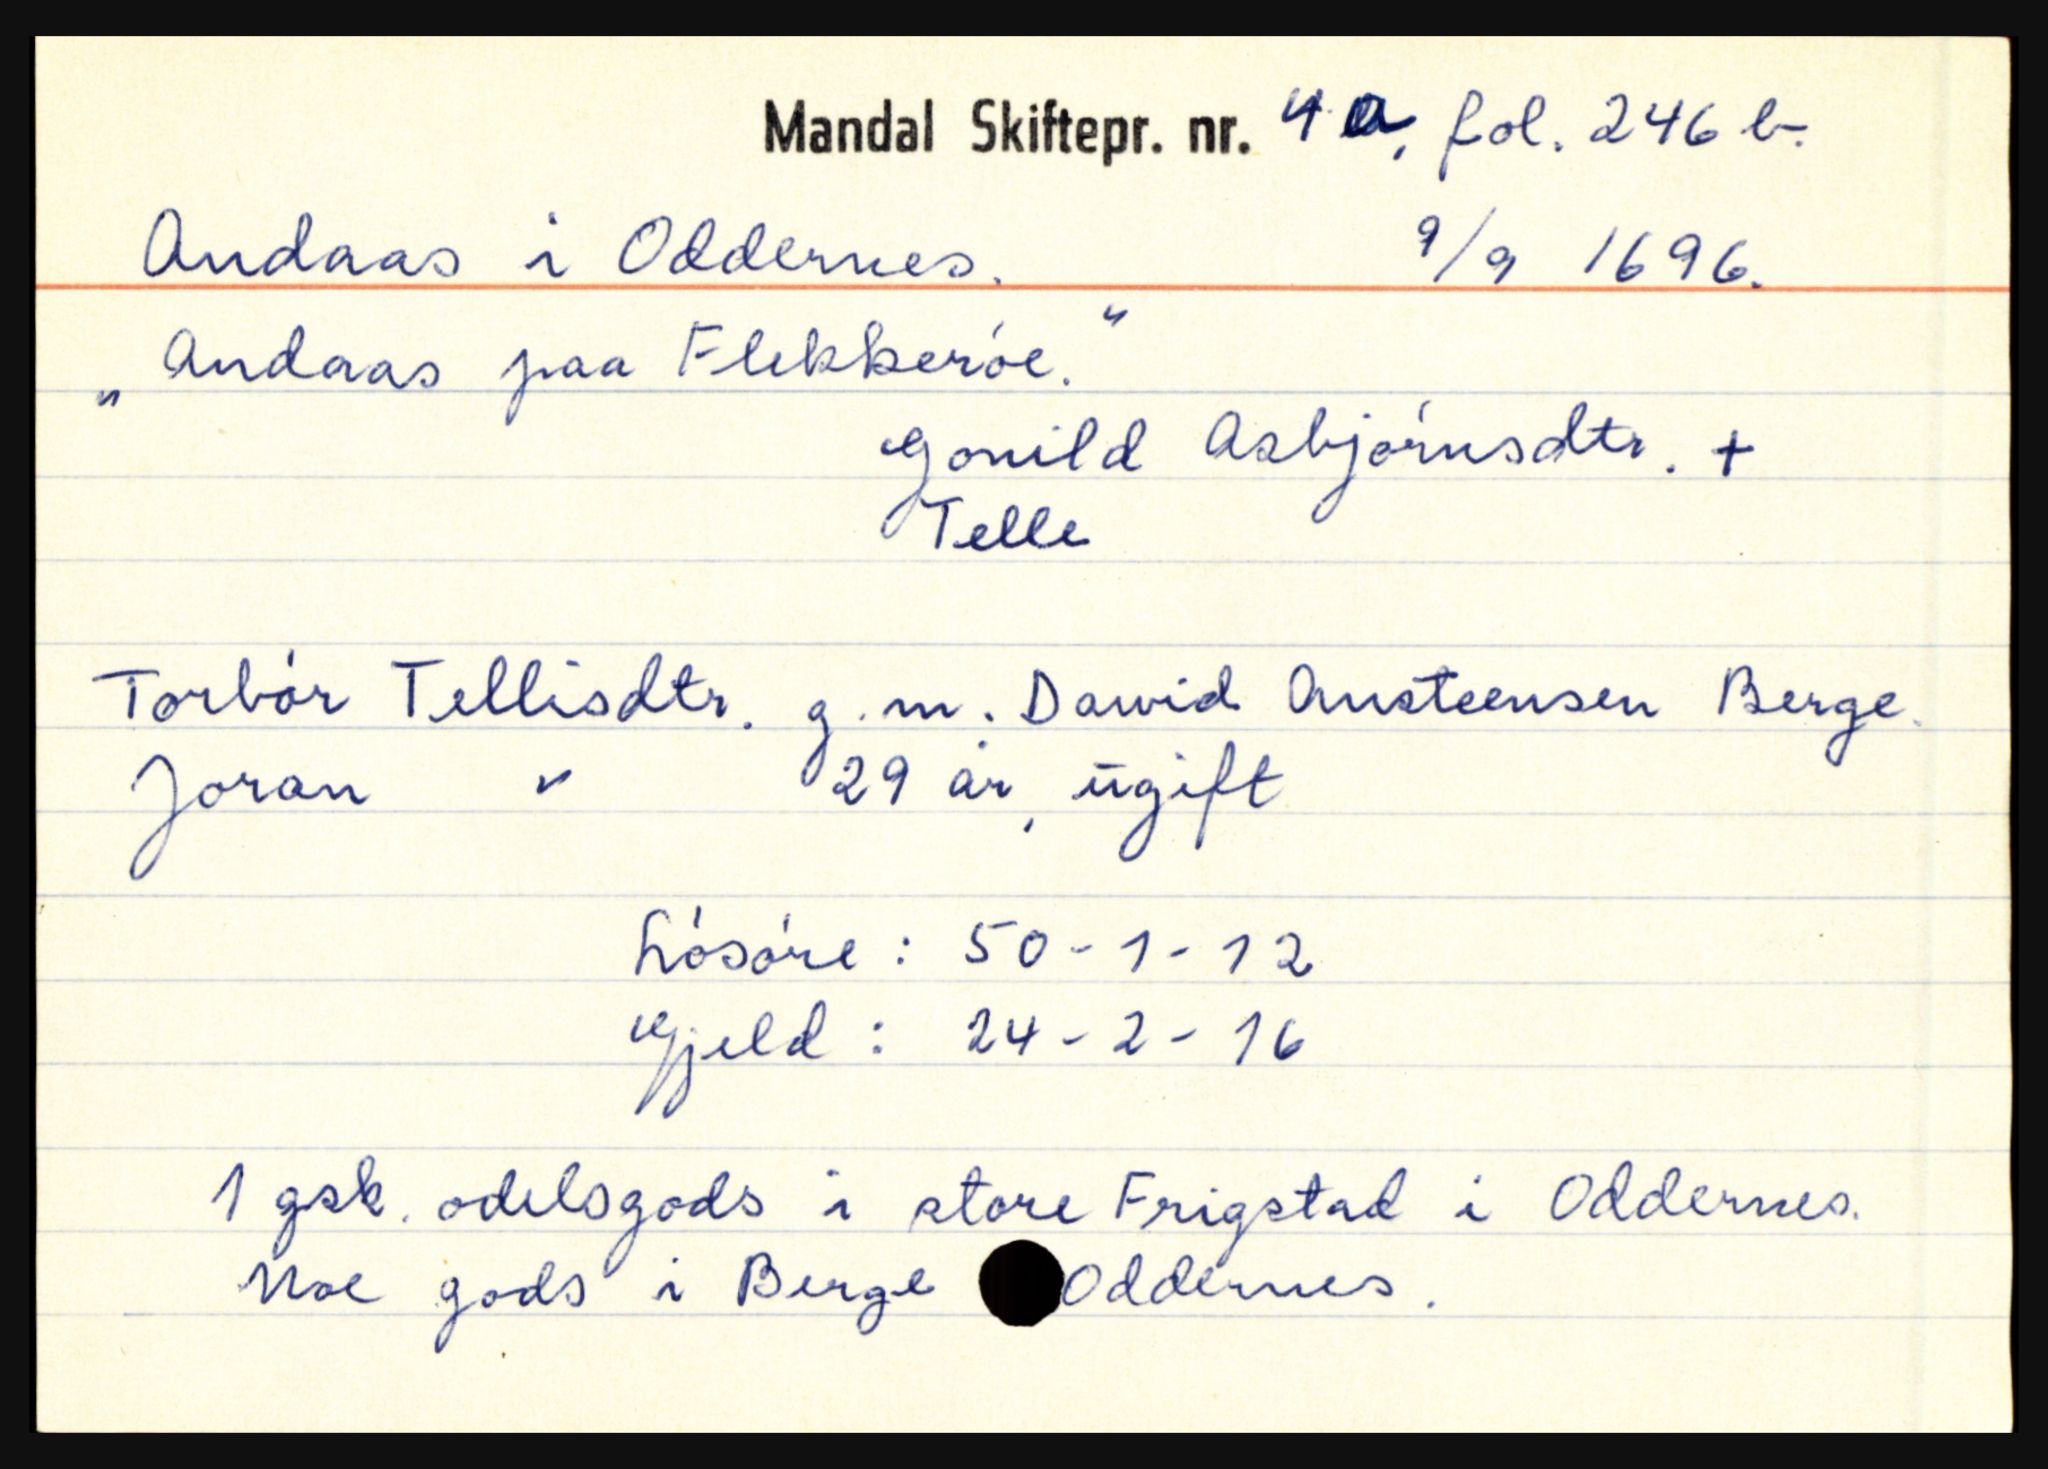 Mandal Skiftepr. nr. 4a, fol. 246 b.
Andaas i Oddernes. 9/9 1696.
„Andaas paa Flekkeróe.“
Gonild Asbjórnsdtr. +
Telle
Torbór Tellisdtr. g.m. Dawid Ansteensen Berge.
Joran " 29 år, ugift
Lósóre: 50-1-12
Gjeld: 24-2-16
1 gsk. odelsgods i store Frigstad i Oddernes.
Noe gods i Berge Oddernes.